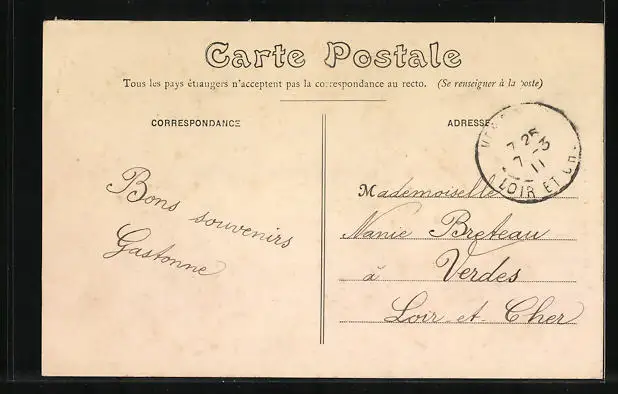 Carte Postale
Tous les pays étrangers n'acceptent pas la correspondance au recto. (Se renseigner à la poste)
CORRESPONDANCE
ADRESSE
7 25
7 - 3
11
LOIR ET CH.
Bons souvenirs
Gastonne
Mademoiselle
Nanie Breteau
à Verdes
Loir-et-Cher